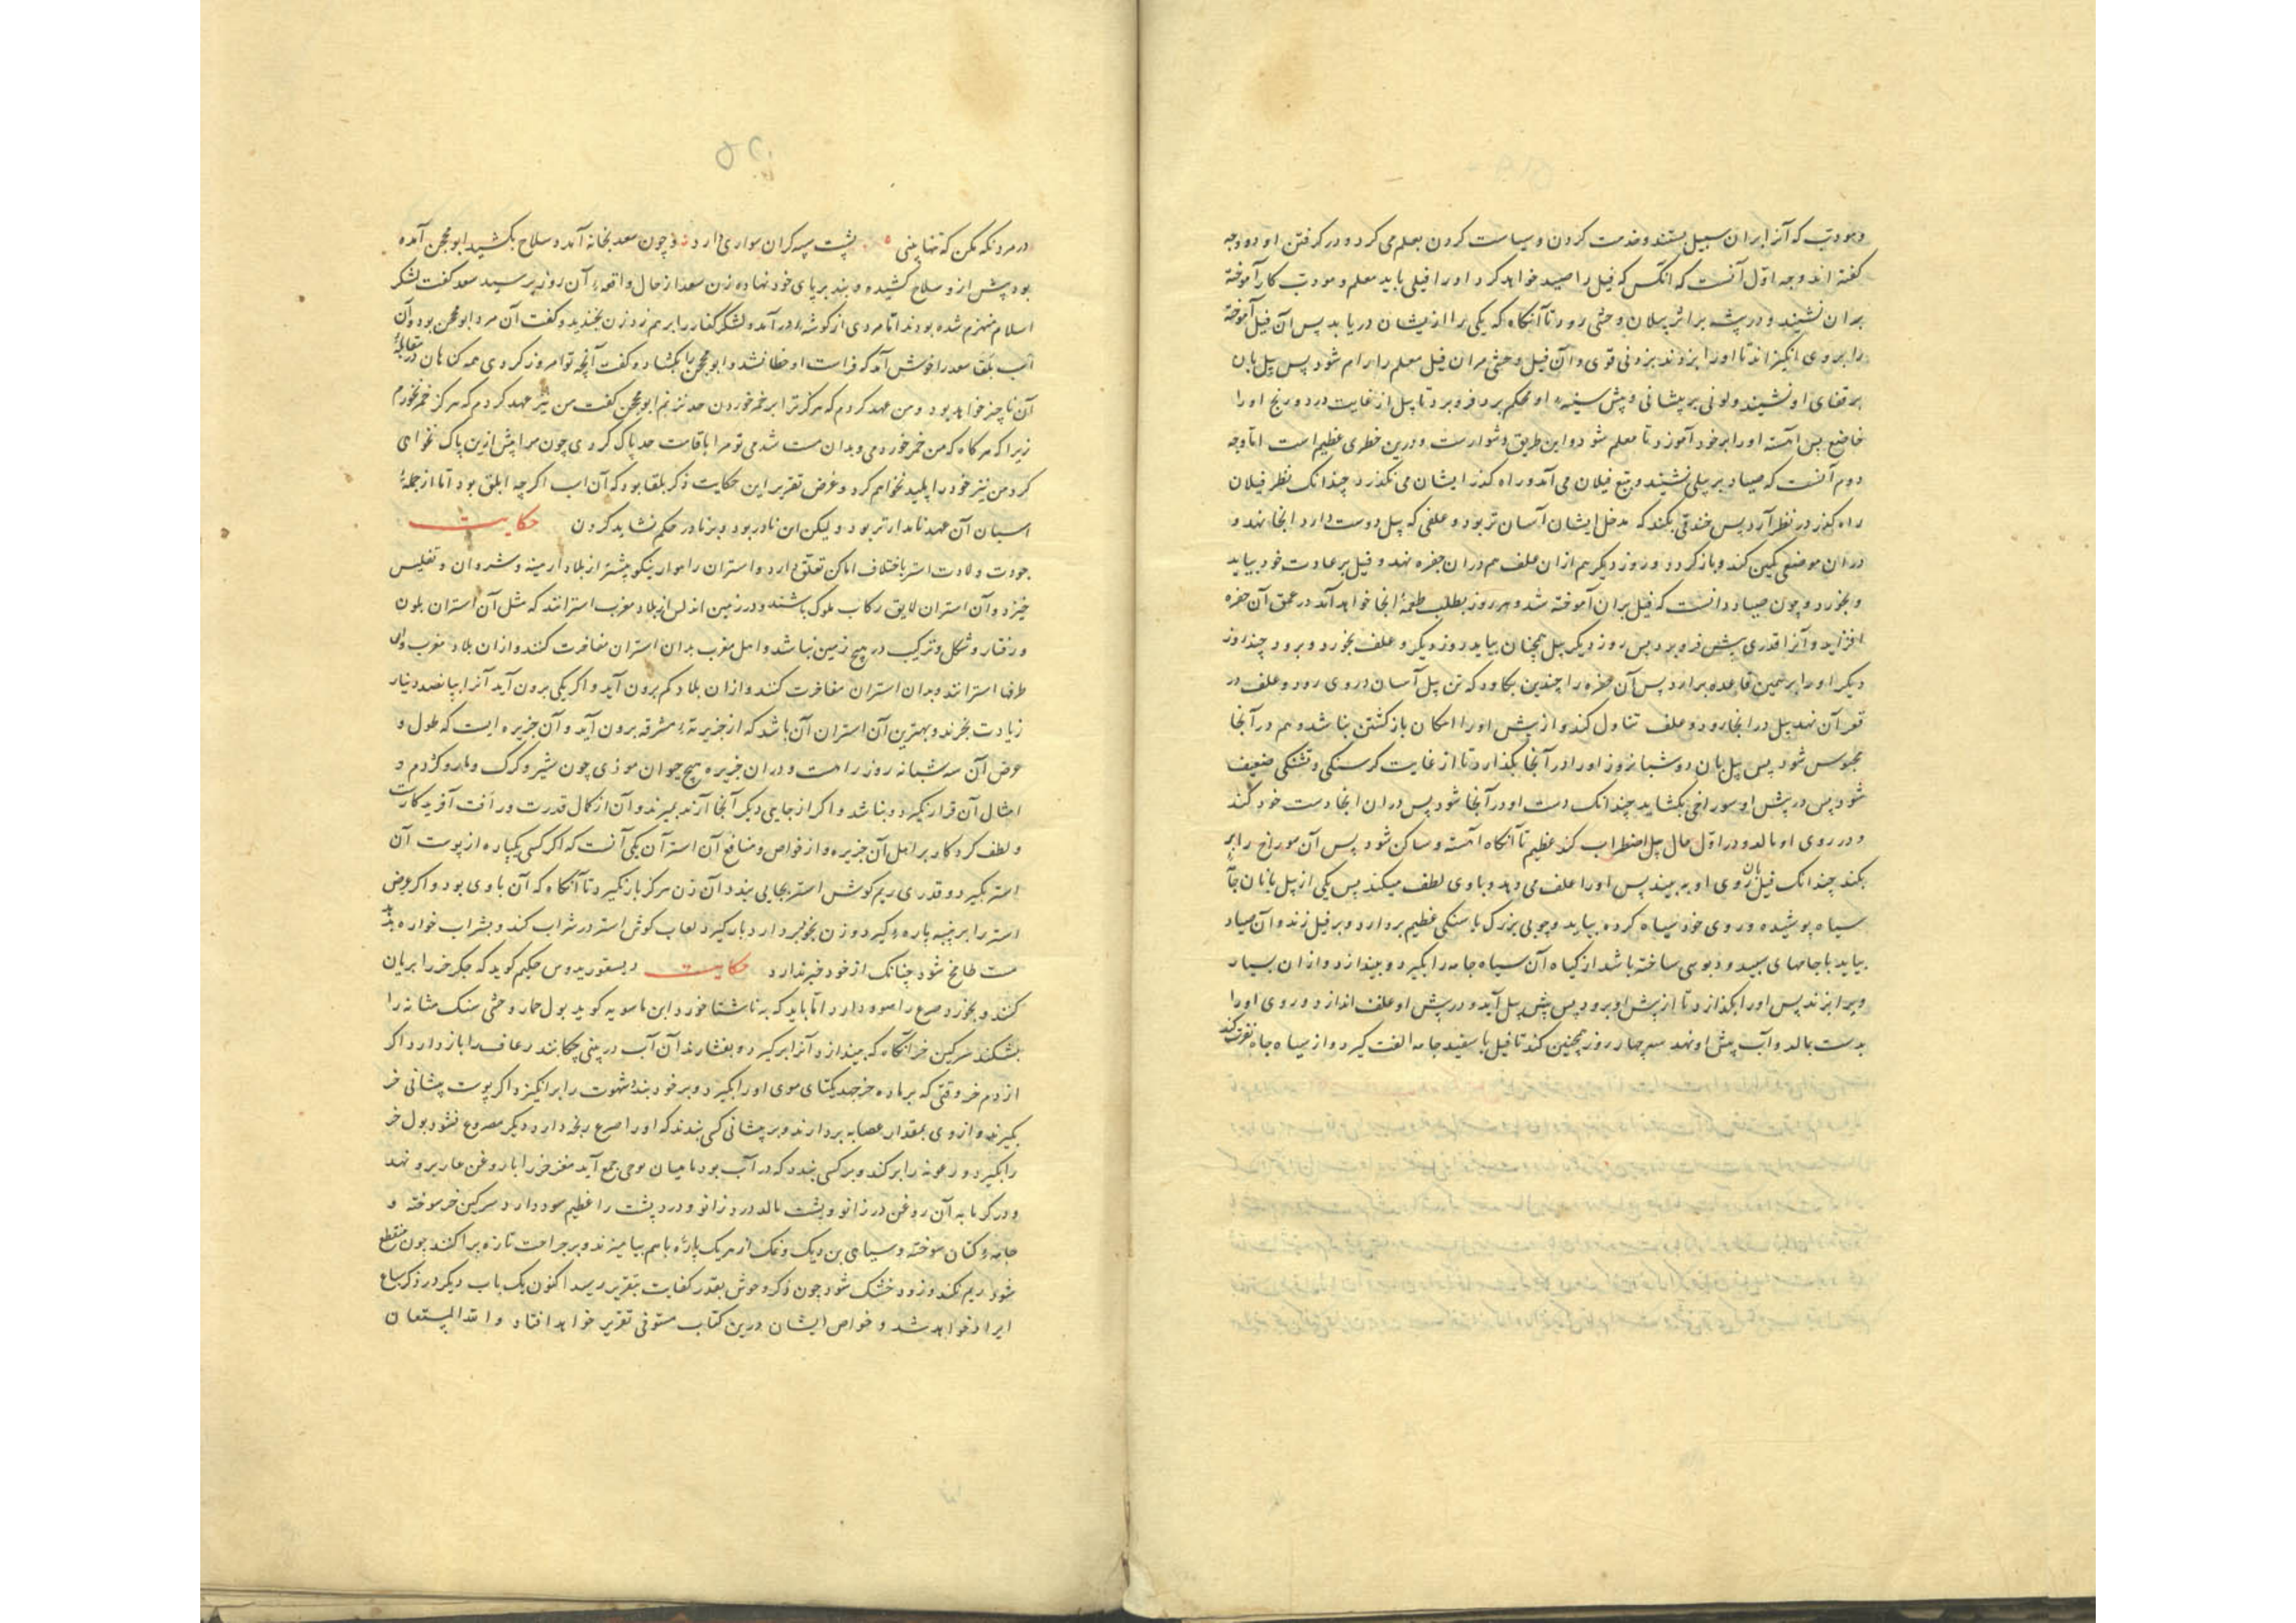 و مودب که آنرا بران سبیل بستند و خدمت کردن و سیاست کردن بعلم می کرد و در کرفتن او دو وجه
کفته اند وجه اول آنست که انکس که فیل را صید خواهد کرد او را فیلی باید معلم و مودب کار آموخته
بران نشیند و در پیشه بر اثر پیلان وحشی رود تا آنکاه که یکی را از ایشان دریابد پس آن فیل آموخته
را بروی انکیزاند تا او را بزوند بزونی قوی و آن فیل وحشی مران فیل معلم را رام شود پس پیل بان
بر قفای او نشیند و لونی بر پیشانی و پیش سینهٔ او محکم برد فرو برد تا پیل از غایت درد و رنج او را
خاضع پس آهسته او را بر خود آموزد تا معلم شود و این طریق دشوارست و درین خطری عظیم است اما وجه
دوم آنست که صیاد بر پیلی نشیند و تبع فیلان می آمد و راه کذر ایشان می نکذرد چندانک نظر فیلان
راه کذر در نظر آرد پس خندقی بکند که مدخل ایشان آسان تر بود و علفی که پیل دوست دارد انجا نهد و
دران موضعی کمین کند و باز کردد و روز دیکر هم ازان علف هم دران حفره نهد و فیل بر عادت خود بیاید
و بخورد و چون صیاد دانست که فیل بران آموخته شد و هر روز بطلب طعمه انجا خواهد آمد در عمق آن حفره
افزاید و آنرا قدری پیش فرو برد پس روز دیکر پیل همچنان بیاید روز دیکر و علف بخورد و برود چند روز
دیکر او را بر همین قاعده بدارد پس آن حفره را چندین بکاود که تن پیل آسان در وی رود و علف در
قعر آن نهد پیل در انجا رود و علف تناول کند و از پیش او را امکان باز کشتن نباشد و هم در آنجا
محبوس شود پس پیل بان دو شبانروز او را در آنجا بکذارد تا از غایت کرسنکی و تشنکی ضعیف
شود پس در پیش او سوراخی بکشاید چندانک دست او در آنجا شود پس دران انجا دست خود کند
و در روی او مالد و در اول حال پیل اضطراب کند عظیم تا آنکاه آهسته و ساکن شود پس آن سوراخ را بر
بکند چندانک فیل بان روی او به بیند پس او را علف می دهد و با وی لطف میکند پس یکی از پیل بانان جامه
سیاه پوشیده و روی خود سیاه کرده بیاید و چوبی بزرک با سنکی عظیم بردارد و بر فیل زند و آن صیاد
بیاید با جامهای سپید و دبوسی ساخته باشد از کیاه آن سیاه جامه را بکیرد و بیندازد و ازان بسیار
ویرا بزند پس او را بکذارد تا از پیش او برود پس پیش پیل آید و در پیش او علف اندازد و روی او را
بدست بمالد و آب پیش او نهد سه چهار روز همچنین کند تا فیل با سفید جامه الفت کیرد و از سیاه جامه نفرت کند
در مرد نکه مکن که تنها بینی پشت سپه کران سواری دارد و چون سعد بخانه آمد و سلاح بکشید ابو محجن آمده
بود پیش ازو سلاح کشیده و بند بر پای خود نهاده زن سعد از حال واقعهٔ آن روز پرسید سعد کفت لشکر
اسلام منهزم شده بودند اما مردی از کوشه در آمد و لشکر کفار را برهم زد زن بخندید و کفت آن مرد ابو محجن بود و آن
اسب بلقا سعد را خوش آمد که فراست او خطا نشد و ابو محجن را بکشاد و کفت آنچه تو امروز کردی همه کناهان در مقابلهٔ
آن ناچیز خواهد بود و من عهد کردم که هرکز ترا بر خمر خوردن حد نزنم ابو محجن کفت من نیز عهد کردم که هرکز خمر نخورم
زیرا که هر کاه که من خمر خوردمی و بدان مست شدمی تو مرا باقامت حد پاک کردی چون مرا پیش ازین پاک نخواهی
کرد من نیز خود را پلید نخواهم کرد و غرض تقریر این حکایت ذکر بلقا بود که آن اسب اکرچه ابلق بود اما از جملهٔ
اسبان آن عهد نامدارتر بود ولیکن این نادر بود و بر نادر حکم نشاید کردن حکایت
جودت ولادت استر باختلاف اماکن تعلق دارد و استران راهوار نیکو بیشتر از بلاد ارمینه و شروان و تفلیس
خیزد و آن استران لایق رکاب ملوک باشند و در زمین اندلس از بلاد مغرب استرانند که مثل آن استران بلون
و رفتار و شکل و ترکیب در هیچ زمین نباشد و اهل مغرب بدان استران مفاخرت کنند و ازان بلاد مغرب والی
طرفا استرانند و بدان استران مفاخرت کنند و ازان بلاد کم برون آید و اکر یکی برون آید آنرا بپانصد دینار
زیادت بخرند و بهترین آن استران آن باشد که از جزیرهٔ مشرقه برون آید و آن جزیره ایست که طول و
عرض آن سه شبانه روز راهست و دران جزیره هیچ حیوان موذی چون شیر و کرک و مار و کژدم و
امثال آن قرار نکیرد و نباشد و اکر از جایی دیکر آنجا آرند بمیرند و آن از کمال قدرت و رأفت آفریدکارست
و لطف کردکار بر اهل آن جزیره و از خواص و منافع آن استر آن یکی آنست که اکر کسی یکپاره از پوست آن
استر بکیرد و قدری ریم کوش استر بجایی بندد آن زن هرکز بار نکیرد تا آنکاه که آن با وی بود و اکر عرض
استر را بر پنبه پاره کیرد و زن بخود بردارد بار کیرد لعاب کوش استر در شراب کند و بشراب خواره دهند
مست طافح شود چنانک از خود خبر ندارد حکایت دیسقوریدوس حکیم کوید که جکر خر را بریان
کنند و بخورد صرع را سود دارد اما باید که به ناشتا خورد ابن ماسویه کوید بول حمار وحشی سنک مثانه را
بشکند سرکین خر آنکاه که بیندازد آنرا برکیرد و بفشارند آن آب در بینی چکانند رعاف را باز دارد اکر
از دم خر وقتی که بر ماده خر جهد یکتای موی او را بکیرد و بر خود بندد شهوت را برانکیزد اکر پوست پیشانی خر
بکیرند و از وی بمقدار عصابه بردارند و بر پیشانی کسی بندند که او را صرع رنجه دارد دیکر مصروع نشود بول خر
را بکیرد و زعونه را بر کند و بر کسی بندد که در آب بود ماهیان بوی جمع آید مغز خر را با روغن غار بروند
و در کرمابه آن روغن در زانو و پشت مالد درد زانو و درد پشت را عظیم سود دارد سرکین خر سوخته و
جامهٔ کتان سوخته و سیاهی بن دیک و نمک از هر یک پاره باهم بیامیزند و بر جراحت تازه پراکنند خون منقطع
شود ریم نکند و زود خشک شود چون ذکر وحوش بقدر کفایت بتقریر رسید اکنون یک باب دیکر در ذکر سباع
ایراد خواهد شد و خواص ایشان درین کتاب مستوفی تقریر خواهد افتاد والله المستعان